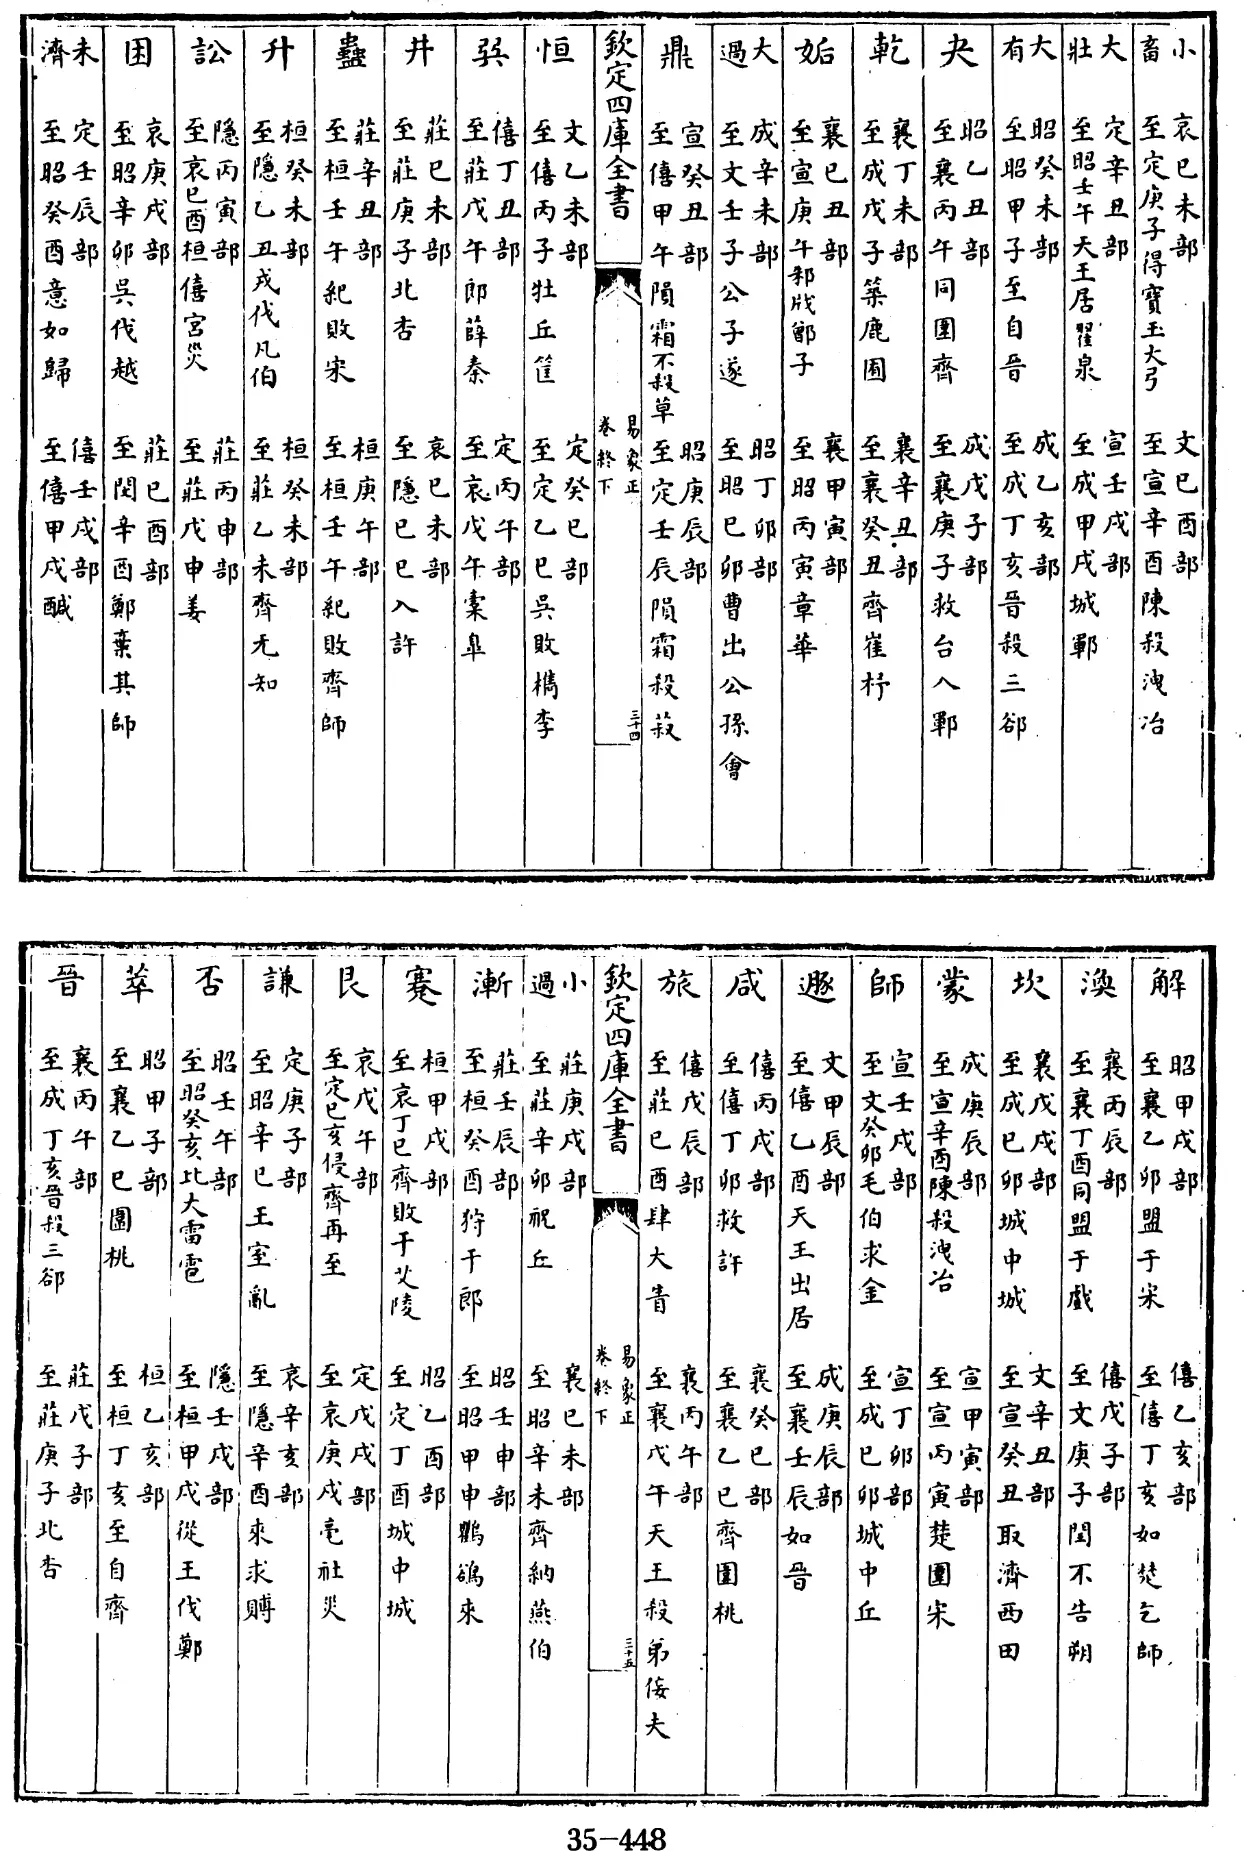 小畜 哀己未部至定庚子得寶玉大弓 文己酉部至宣辛酉陳殺洩冶
大壯 定辛丑部至昭壬午天王居翟泉 宣壬戌部至成甲戌城鄆
大有 昭癸未部至昭甲子至自晉 成乙亥部至成丁亥晉殺三郤
夬 昭乙丑部至襄丙午同圍齊 成戊子部至襄庚子救台入鄆
乾 襄丁未部至成戊子築鹿囿 襄辛丑部至襄癸丑齊崔杼
姤 襄己丑部至宣庚午邾戕鄫子 襄甲寅部至昭丙寅章華
大過 成辛未部至文壬子公子遂 昭丁卯部至昭己卯曹出公孫會
鼎 宣癸丑部至僖甲午隕霜不殺草 昭庚辰部至定壬辰隕霜殺菽
欽定四庫全書 易象正卷終下 三十四
恒 文乙未部至僖丙子牡丘筐 定癸巳部至定乙巳吳敗檇李
巽 僖丁丑部至莊戊午郎薛秦 定丙午部至哀戊午橐臯
井 莊己未部至莊庚子北杏 哀己未部至隱己巳入許
蠱 莊辛丑部至桓壬午紀敗宋 桓庚午部至桓壬午紀敗齊師
升 桓癸未部至隱乙丑戎伐凡伯 桓癸未部至莊乙未齊无知
訟 隱丙寅部至哀己酉桓僖宮災 莊丙申部至莊戊申姜
困 哀庚戌部至昭辛卯吳伐越 莊己酉部至閔辛酉鄭棄其師
未濟 定壬辰部至昭癸酉意如歸 僖壬戌部至僖甲戌鹹
解 昭甲戌部至襄乙卯盟于宋 僖乙亥部至僖丁亥如楚乞師
渙 襄丙辰部至襄丁酉同盟于戲 僖戊子部至文庚子閏不告朔
坎 襄戊戌部至成己卯城中城 文辛丑部至宣癸丑取濟西田
蒙 成庚辰部至宣辛酉陳殺洩冶 宣甲寅部至宣丙寅楚圍宋
師 宣壬戌部至文癸卯毛伯求金 宣丁卯部至成己卯城中丘
遯 文甲辰部至僖乙酉天王出居 成庚辰部至襄壬辰如晉
咸 僖丙戌部至僖丁卯救許 襄癸巳部至襄乙巳齊圍桃
旅 僖戊辰部至莊己酉肆大眚 襄丙午部至襄戊午天王殺弟佞夫
欽定四庫全書 易象正卷終下 三十五
小過 莊庚戌部至莊辛卯祝丘 襄己未部至昭辛未齊納燕伯
漸 莊壬辰部至桓癸酉狩于郎 昭壬申部至昭甲申鸜鵒來
蹇 桓甲戌部至哀丁巳齊敗于艾陵 昭乙酉部至定丁酉城中城
艮 哀戊午部至定己亥侵齊再至 定戊戌部至哀庚戌亳社災
謙 定庚子部至昭辛巳王室亂 哀辛亥部至隱辛酉來求賻
否 昭壬午部至昭癸亥北大雷雹 隱壬戌部至桓甲戌從王伐鄭
萃 昭甲子部至襄乙巳圍桃 桓乙亥部至桓丁亥至自齊
晉 襄丙午部至成丁亥晉殺三郤 莊戊子部至莊庚子北杏
35-448